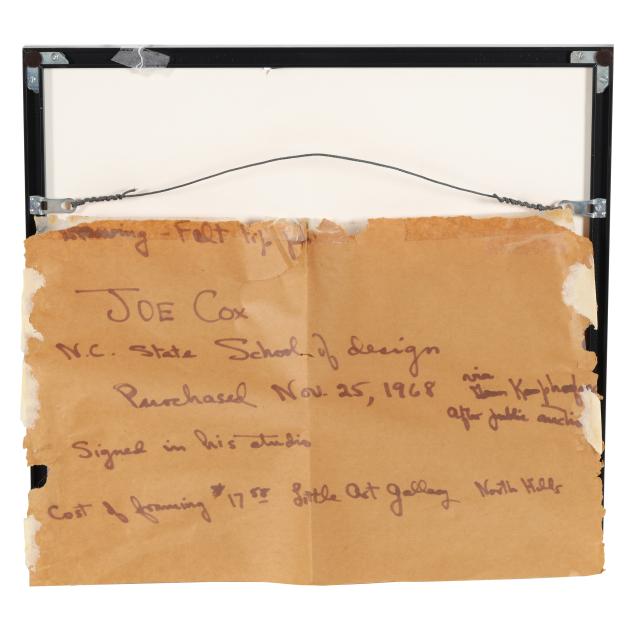 Drawing - Felt tip pen
JOE COX
N.C. State School of design
Purchased Nov. 25, 1968 via
Dean Kamphoefner
After public auction
Signed in his studio
Cost of framing $17.50 Little Art Gallery North Hills